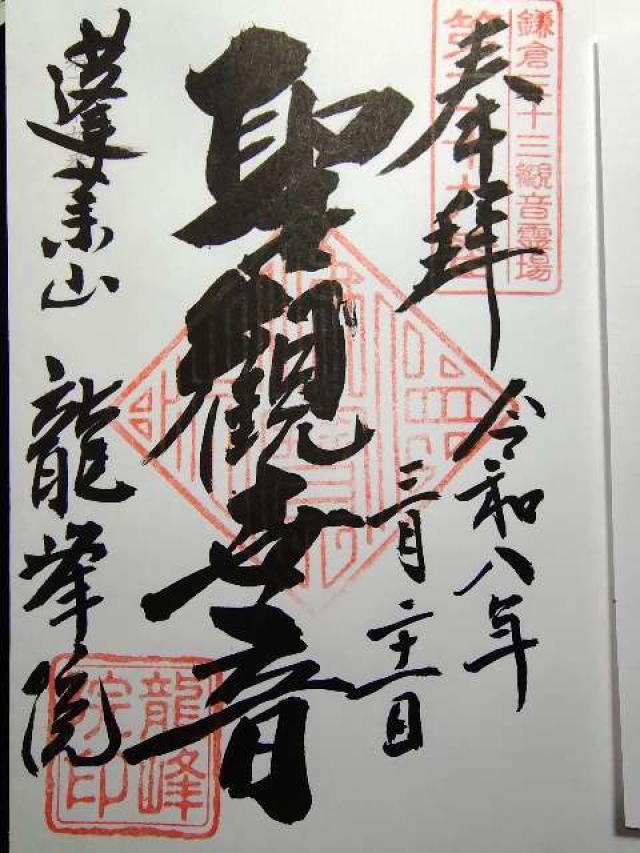 鎌倉三十三観音霊場
奉拝
令和八年
三月二十一日
聖觀世音
蓬莱山 龍峰院
龍峰院印